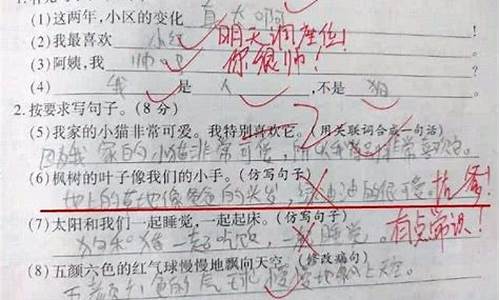 (1)这两年,小区的变化 真大啊
(2)我最喜欢 小红 明天调座位!
(3)阿姨,我 帅吗 你很帅!
(4) 我 是 人 ,不是 狗
2.按要求写句子。(8分)
(5)我家的小猫非常可爱。我特别喜欢它。(用关联词合成一句话)
因为我家的小猫非常可爱,所以我特别非常喜欢它。
(6)枫树的叶子像我们的小手。(仿写句子)
地上的草地像爸爸的头发,绿油油的很可爱。抗爹!
(7)太阳和我们一起睡觉,一起起床。(仿写句子)
狗和猫一起吃饭,一起睡觉。有点常识!
(8)五颜六色的红气球慢慢地飘向天空。(修改病句)
五颜六色的气球慢慢地飘上天空。